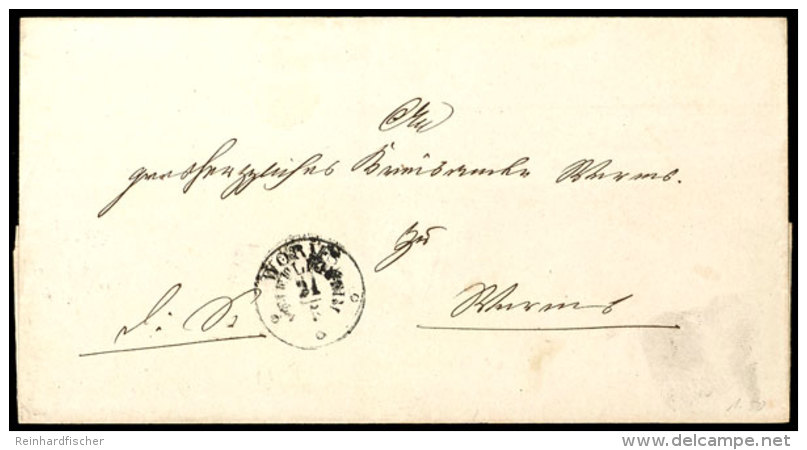 An
grosherzgliches Kreisamte Worms.
zu
Worms
d. S.
WORMS
21
Reinhardfischer
delcampe.net